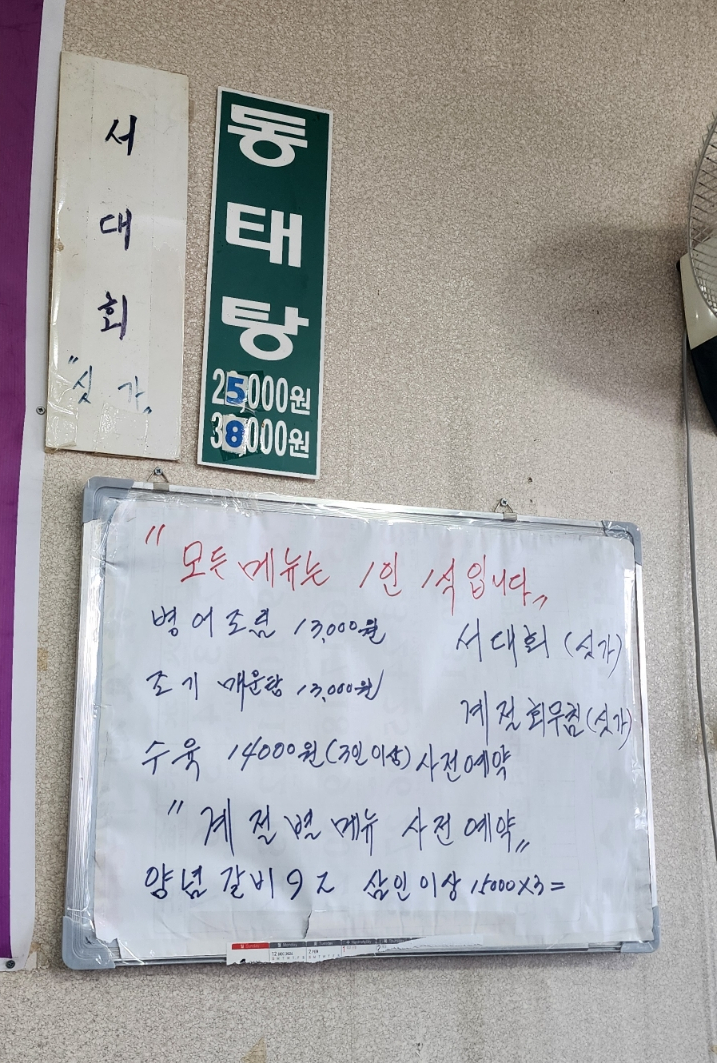 서대회
"싯가"
동태탕
25000원
38000원
"모든 메뉴는 1인 1식입니다"
병어조림 13,000원
서대회 (싯가)
조기 매운탕 13,000원
계절회무침(싯가)
수육 14000원(3인이상) 사전예약
"계절별메뉴 사전예약"
양념갈비 9Z 삼인이상 15000X3=